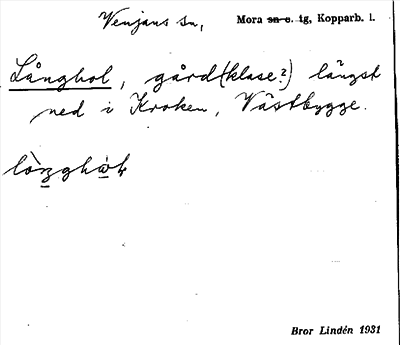 Venjans sn, Mora sn o. tg, Kopparb. l.
Långhol, gård(klase?) längst
ned i Kroken, Västbygge.
Bror Lindén 1931